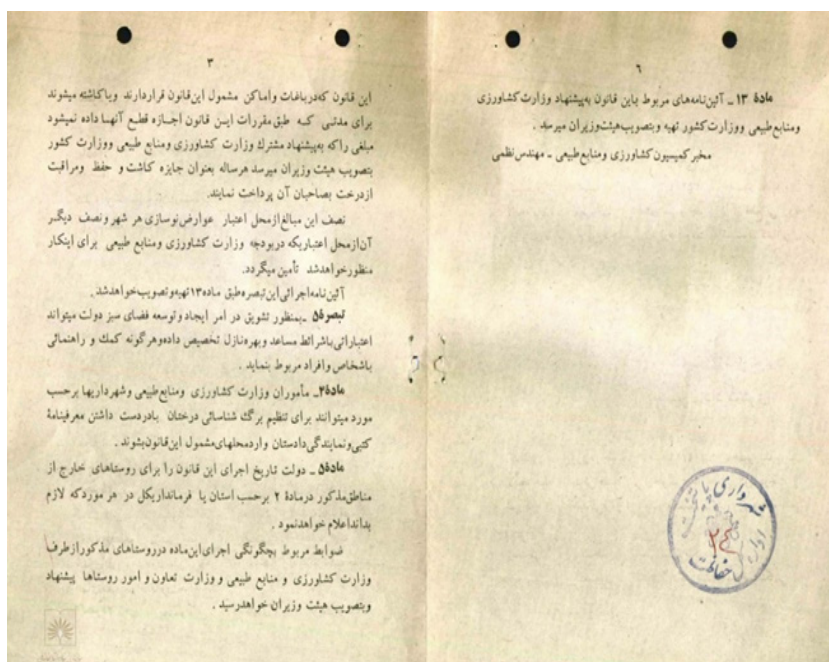 ۶
مادهٔ ۱۳ ـ آئین‌نامه‌های مربوط باین قانون به‌پیشنهاد وزارت کشاورزی
ومنابع‌طبیعی ووزارت کشور تهیه وبتصویب هیئت‌وزیران میرسد .
مخبر کمیسیون کشاورزی ومنابع طبیعی ـ مهندس نظمی
شهرداری پایتخت
اداره حفاظت
۳
این قانون که‌درباغات واماکن مشمول این‌قانون قراردارند ویاکاشته میشوند
برای مدتی که طبق مقررات این قانون اجازه قطع آنها داده نمیشود
مبلغی راکه به‌پیشنهاد مشترك وزارت کشاورزی ومنابع طبیعی ووزارت کشور
بتصویب هیئت وزیران میرسد هرساله بعنوان جایزه کاشت و حفظ ومراقبت
ازدرخت بصاحبان آن پرداخت نمایند.
نصف این مبالغ ازمحل اعتبار عوارض نوسازی هر شهر ونصف دیگر
آن ازمحل اعتباریکه دربودجه وزارت کشاورزی ومنابع طبیعی برای اینکار
منظورخواهدشد تأمین میگردد.
آئین‌نامه‌اجرائی‌این‌تبصره‌طبق ماده۱۳تهیه‌وتصویب‌خواهدشد.
تبصرهٔ۵ ـ بمنظور تشویق در امر ایجاد وتوسعه فضای سبز دولت میتواند
اعتباراتی‌باشرائط مساعد وبهره‌نازل تخصیص داده‌وهرگونه کمك و راهنمائی
باشخاص وافراد مربوط بنماید .
مادهٔ۴ـ مأموران وزارت کشاورزی ومنابع‌طبیعی وشهرداریها برحسب
مورد میتوانند برای تنظیم برگ شناسائی درختان بادردست داشتن معرفینامهٔ
کتبی‌ونمایندگی‌دادستان واردمحلهای‌مشمول این‌قانون‌بشوند .
مادهٔ۵ ـ دولت تاریخ اجرای این قانون را برای روستاهای خارج از
مناطق‌مذکور درمادهٔ ۲ برحسب استان یا فرمانداریکل در هر موردکه لازم
بدانداعلام خواهدنمود .
ضوابط مربوط بچگونگی اجرای‌این‌ماده درروستاهای مذکورازطرف
وزارت کشاورزی و منابع طبیعی و وزارت تعاون و امور روستاها پیشنهاد
وبتصویب هیئت وزیران خواهدرسید .